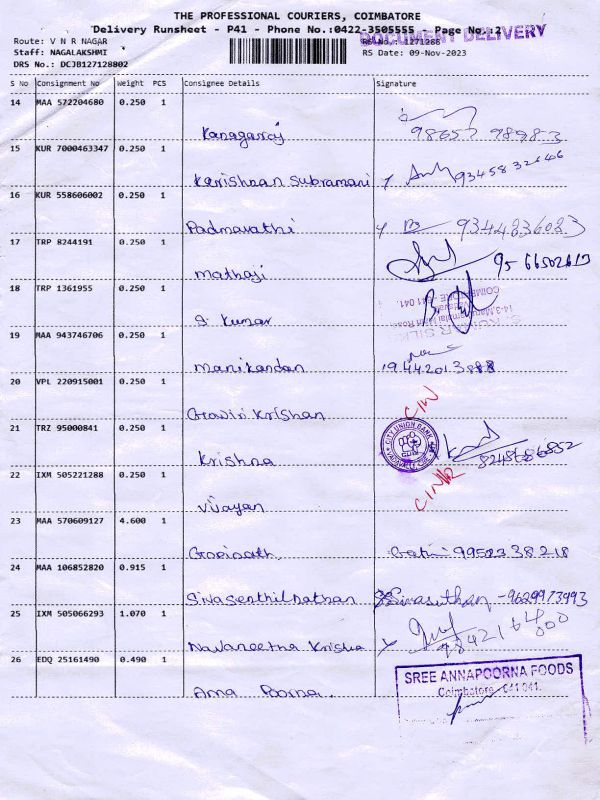 THE PROFESSIONAL COURIERS, COIMBATORE
Delivery Runsheet - P41 - Phone No.:0422-3505555 Page No.:2
DOCUMENT DELIVERY
Route: V N R NAGAR
Staff: NAGALAKSHMI
DRS No.: DCJB127128802
RS No.: 1271288
RS Date: 09-Nov-2023
S No Consignment No Weight PCS Consignee Details Signature
14 MAA 572204680 0.250 1
Kanagaraj 98657 98983
15 KUR 7000463347 0.250 1
Karishnan Subramani 9345832646
16 KUR 558606002 0.250 1
Padmavathi 9344836083
17 TRP 8244191 0.250 1
Mathaji 95 66502613
18 TRP 1361955 0.250 1
S. Kumar
COIMBATORE - 641 041.
19 MAA 943746706 0.250 1
Manikandan 19.44201.3888
20 VPL 220915001 0.250 1
Gowri Krishan
21 TRZ 95000841 0.250 1
CITY UNION BANK
Krishna 8248686852
22 IXM 505221288 0.250 1
Vijayan
23 MAA 570609127 4.600 1
Gopinath. 99523 38218
24 MAA 106852820 0.915 1
Sivasenthilnathan -9629973993
25 IXM 505066293 1.070 1
Navaneetha Krisha 9842164000
26 EDQ 25161490 0.490 1
Anna Poorna.
SREE ANNAPOORNA FOODS
Coimbatore - 641 041.